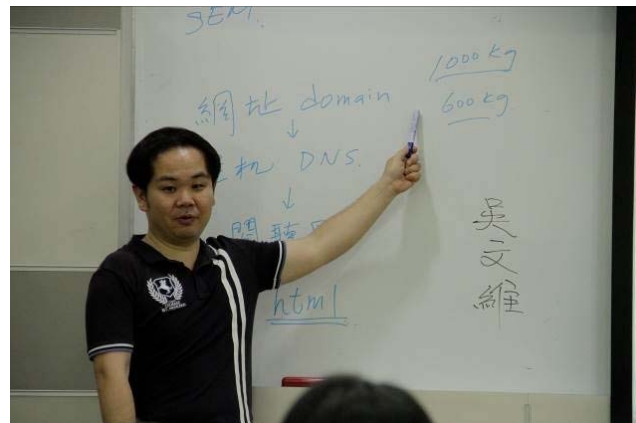 SEM
網址 domain
机 DNS.
html
1000 kg
600 kg
吳文維